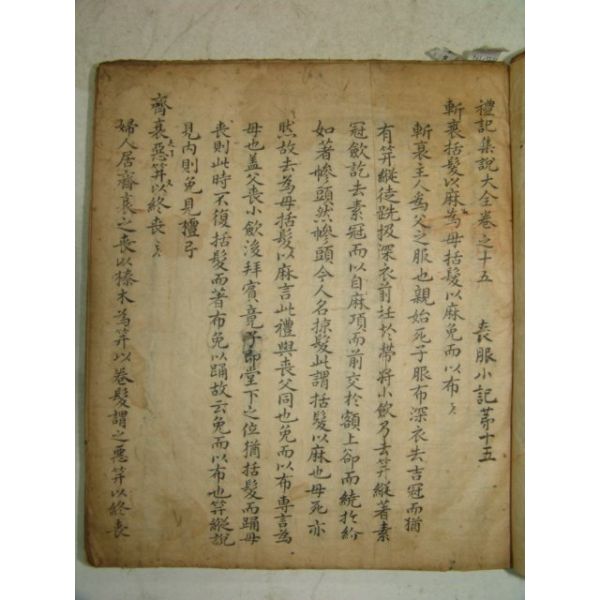 禮記集說大全卷之十五 喪服小記苐十五
斬衰括髮以麻為母括髮以麻免而以布
斬衰主人為父之服也親始死子服布深衣去吉冠而猶
有笄縰徒跣扱深衣前衽於帶將小斂乃去笄縰著素
冠斂訖去素冠而以自麻項而前交於額上卻而繞於紒
如著幓頭然幓頭今人名掠髮此謂括髮以麻也母死亦
然故云為母括髮以麻言此禮與喪父同也免而以布專言為
母也盖父喪小斂後拜賓竟子即堂下之位猶括髮而踊母
喪則此時不復括髮而著布免以踊故云免而以布也笄縰說
見內則免見檀弓
齊衰惡笄以終喪
婦人居齊衰之喪以榛木為笄以卷髮謂之惡笄以終喪